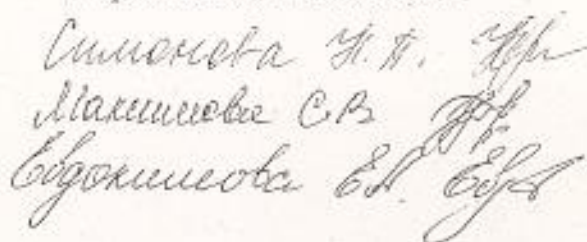 Симонова Н.П.
Максимова С.В
Евдокимова Е.А.